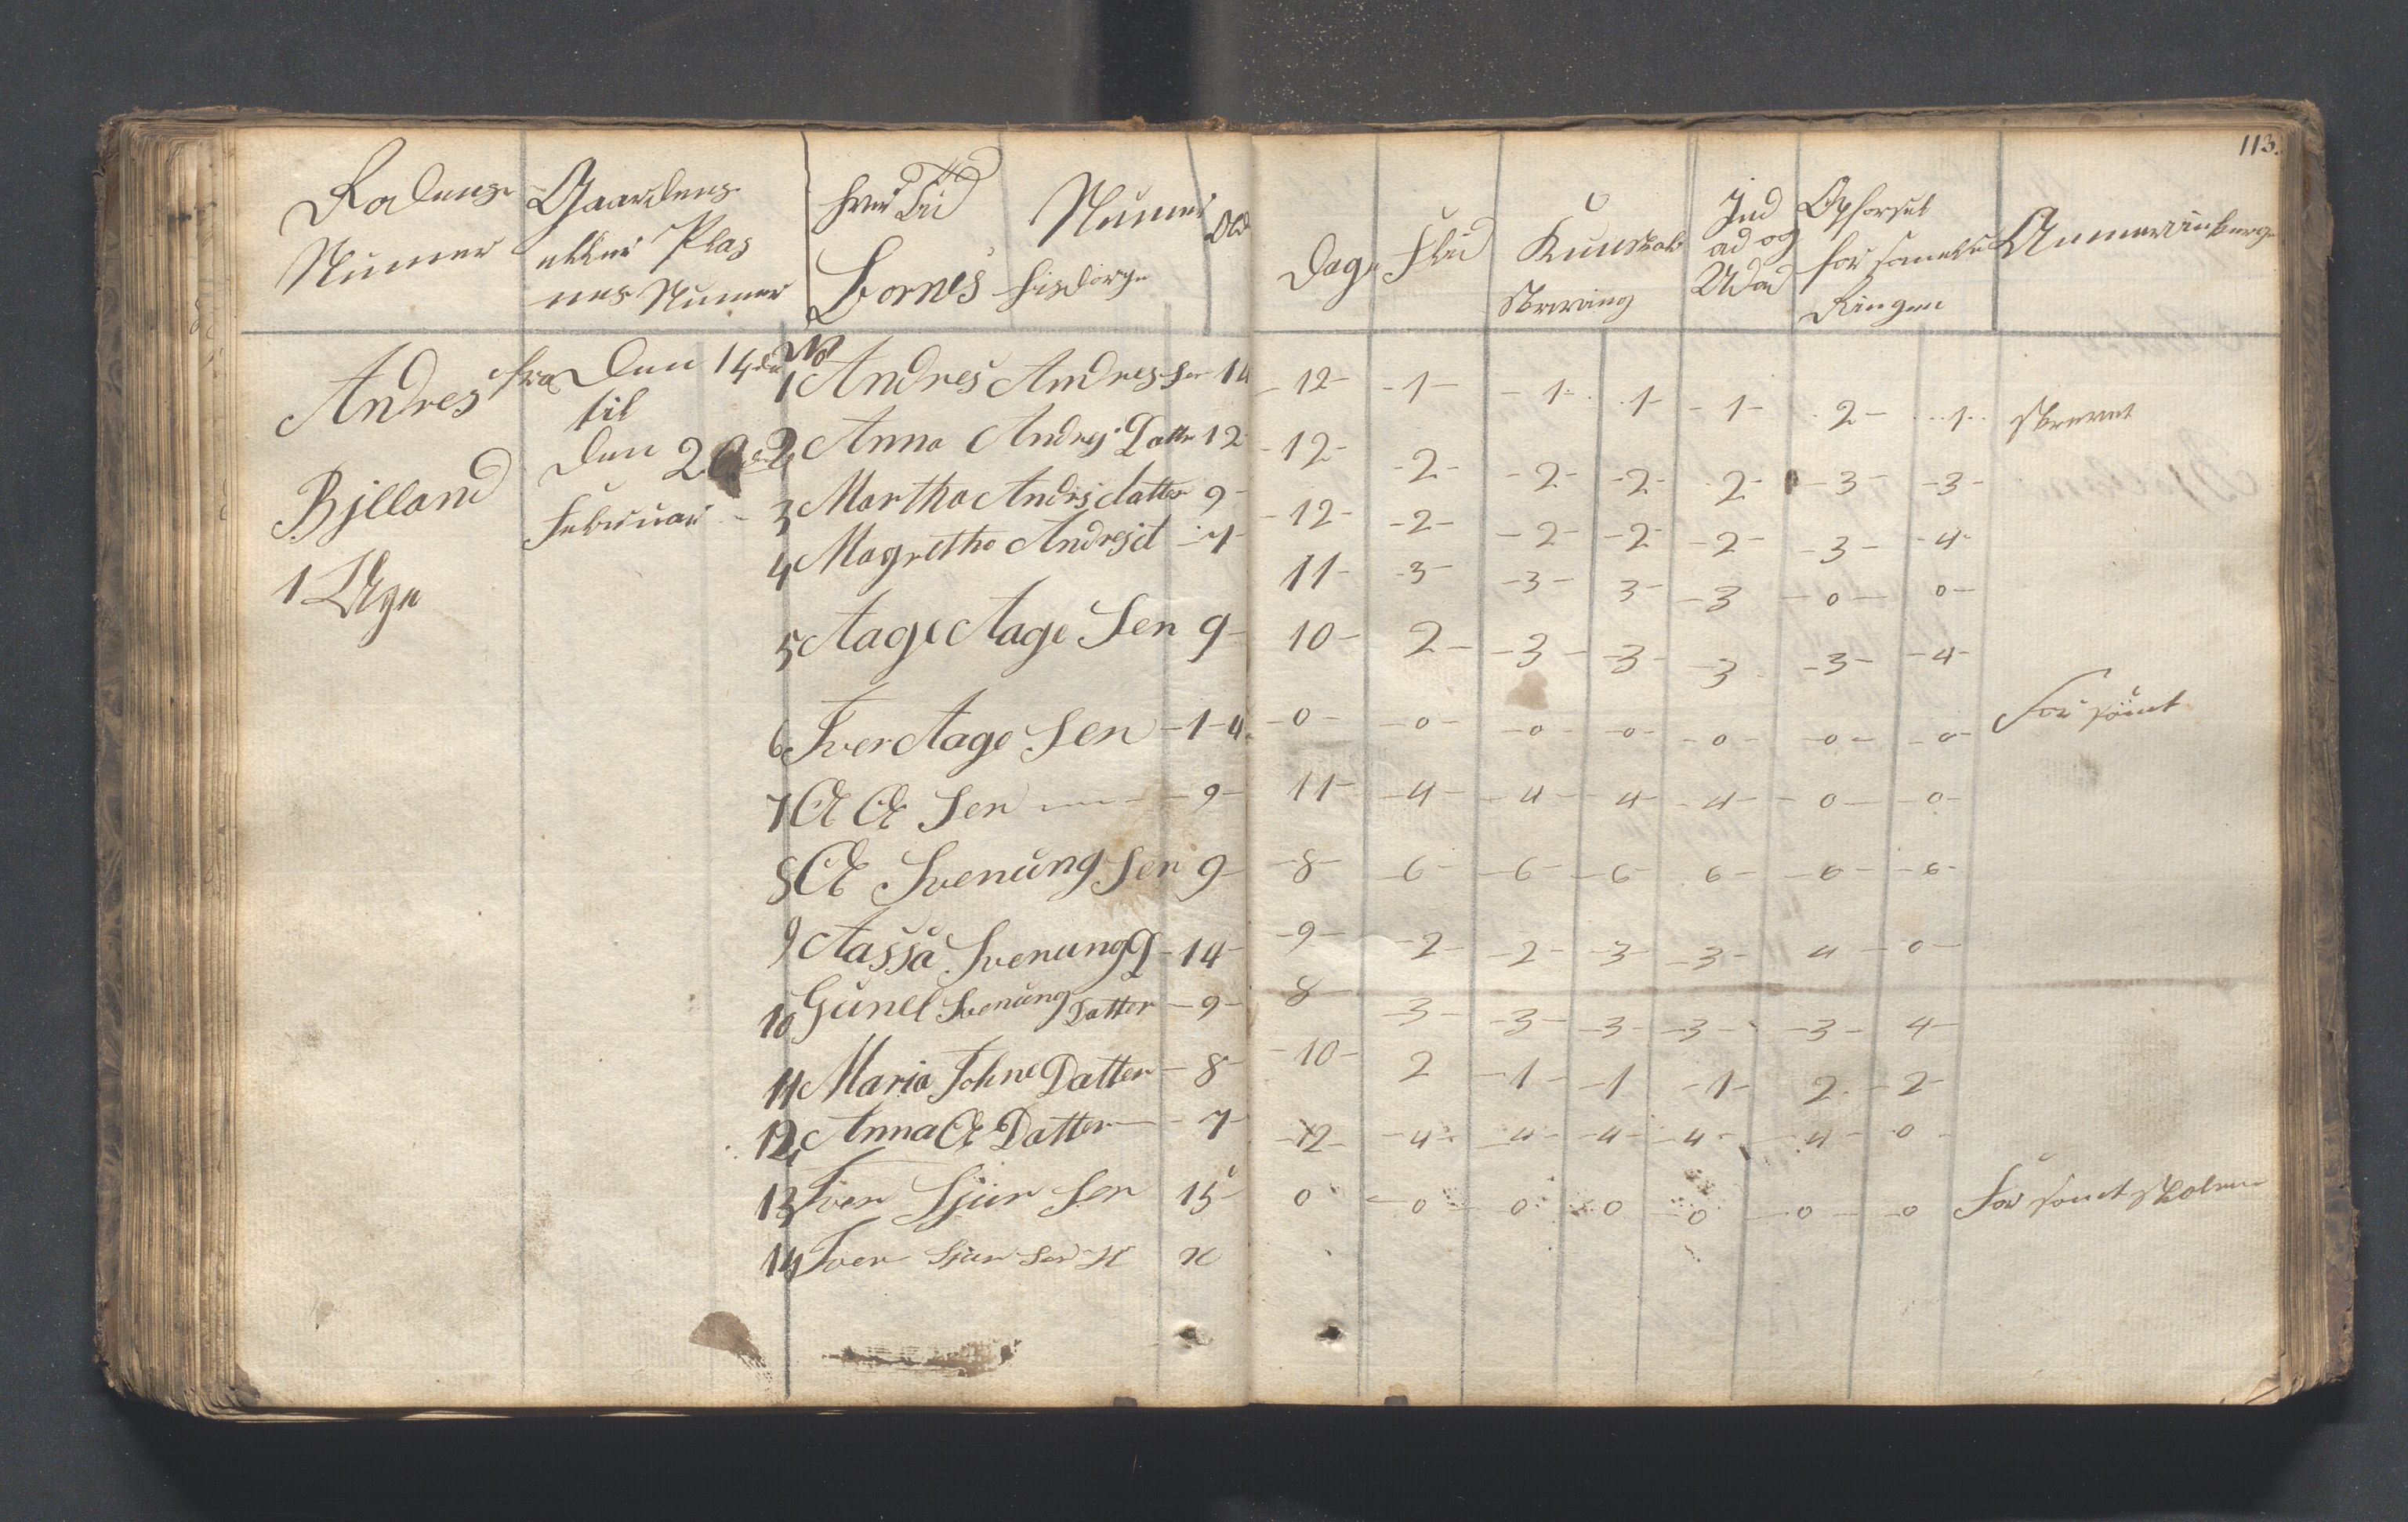 113.
Rodens Numer
Gaardens eller Plas nes Numer
hver Tid
Børnes Numer
Old
Dage
Flid
Kunskab
Skriving
Ind ad og Udad
Opførsel for samelu Ringen
Anmerkinger
Andres
Bjelland
1 Uge
fra Den 14de
til
Den 20
Februar
No
1 Andres Andres Sen 14 -12- -1- -1- -1- -1- 2- -1- skrevet
2 Anna Andres Datter 12 -12- -2- -2- -2- -2- -3- -3-
3 Martha Andrs datter 9 -12- -2- -2- -2- -2- -3- -4-
4 Magretha Andres d -7- 11- -3- -3- 3- -3 -0- 0-
5 Aage Aage Sen 9- 10- 2- -3- -3- -3 -3- -4-
6 Iver Aage Sen -14 -0- -0- -0- -0- -0- -0- -0- Forsømt
7 Ole Ole Sen - 9- 11- -4- -4- 4- -4- -0- -0-
8 Ole Svenung Sen 9- -8- -6- -6- -6- 6- -6- -6-
9 Aassa Svenung D -14- -9- -2- -2- -3- -3- 4- 0-
10 Gunel Svenung Datter -9- 8- -3- -3- -3- -3- -3- 4-
11 Maria Johne Datter -8- -10- 2 -1- -1 -1- 2- -2-
12 Anna Ole Datter - 7- -12- -4- -4- -4- -4- -4- 0-
13 Iver Sjur Sen 15- 0 -0- 0- 0 -0- -0- -0 Forsømt skolen
14 Iver Sjur Sen